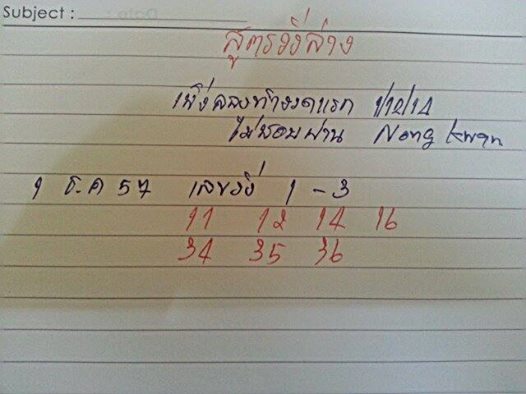 Subject :
สูตรวิ่งล่าง
เพิ่งลองทำงวดแรก 1/12/14
ไม่ชอบผ่าน Nong kwan
1 ธ.ค 57 เลขวิ่ง 1 - 3
11 12 14 16
34 35 36